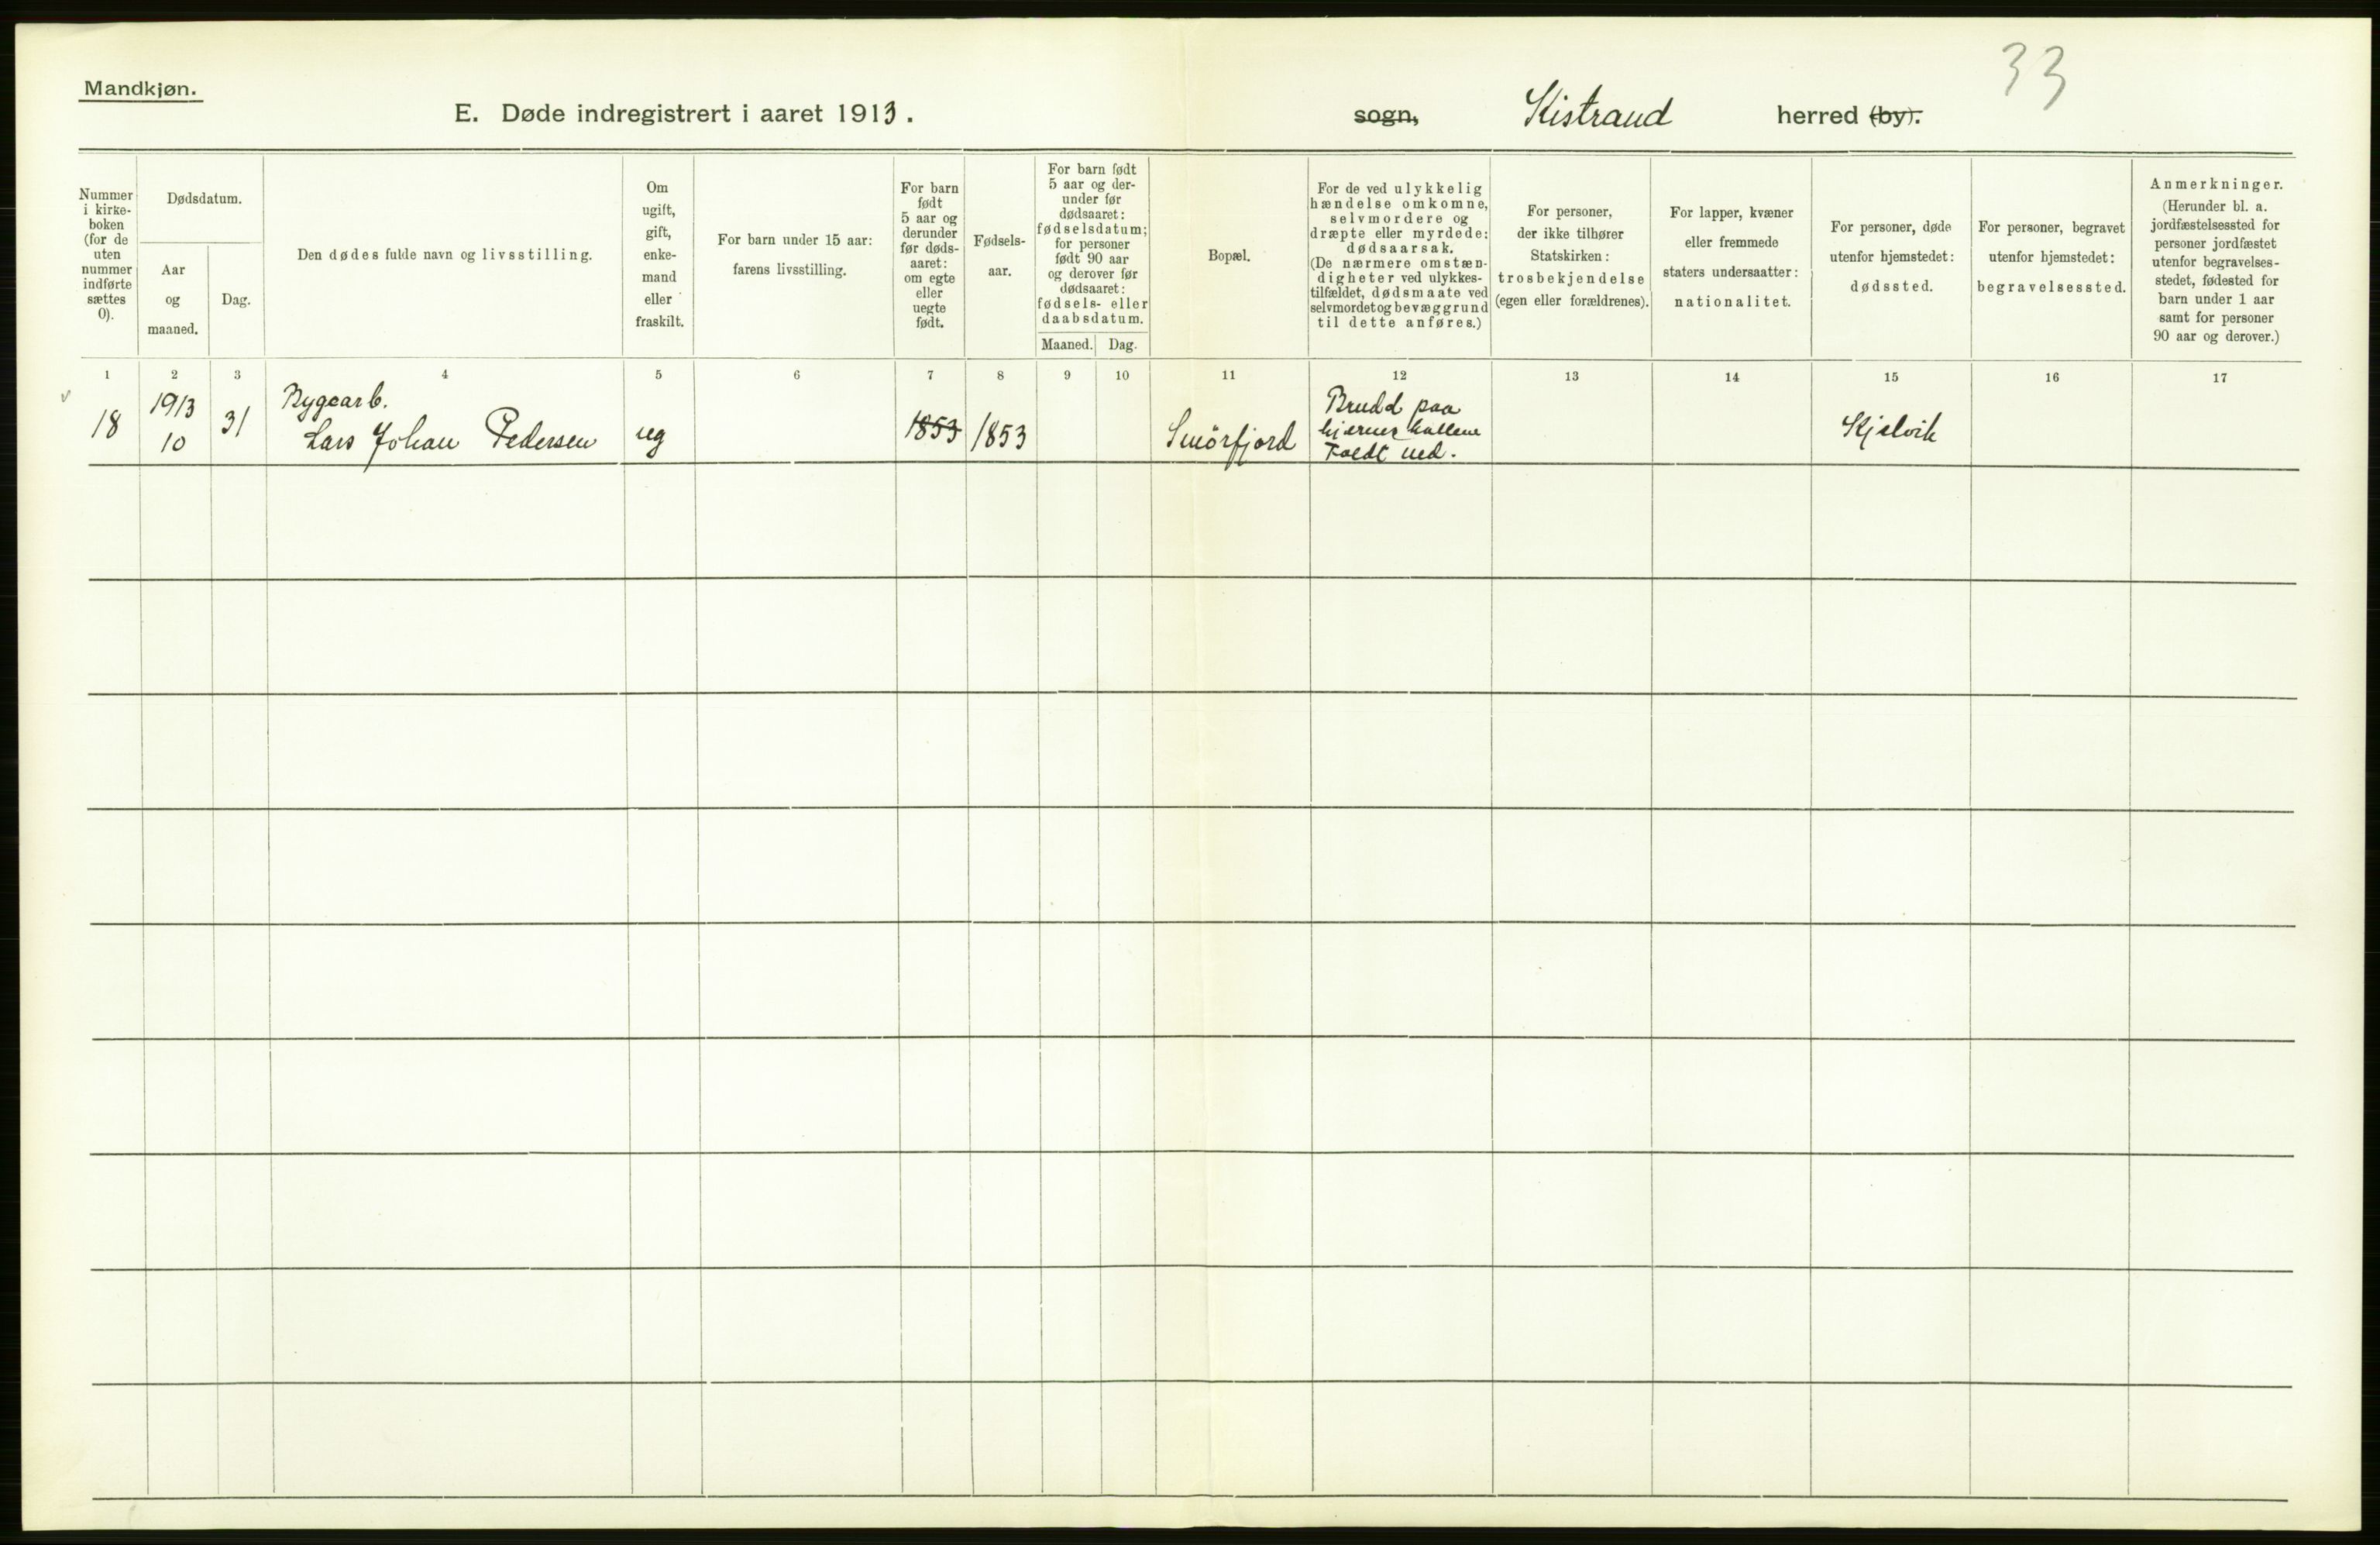 33
Mandkjøn.
E. Døde indregistrert i aaret 1913. sogn, Kistrand herred (by).
Nummer
i kirke-
boken
(for de
uten
nummer
indførte
sættes
0).
Dødsdatum.
Aar
og
maaned.
Dag.
Den dødes fulde navn og livsstilling.
Om
ugift,
gift,
enke-
mand
eller
fraskilt.
For barn under 15 aar:
farens livsstilling.
For barn
født
5 aar og
derunder
før døds-
aaret:
om egte
eller
uegte
født.
Fødsels-
aar.
For barn født
5 aar og der-
under før
dødsaaret:
fødselsdatum;
for personer
født 90 aar
og derover før
dødsaaret:
fødsels- eller
daabsdatum.
Maaned. Dag.
Bopæl.
For de ved ulykkelig
hændelse omkomne,
selvmordere og
dræpte eller myrdede:
dødsaarsak.
(De nærmere omstæn-
digheter ved ulykkes-
tilfældet, dødsmaate ved
selvmordet og bevæggrund
til dette anføres.)
For personer,
der ikke tilhører
Statskirken:
trosbekjendelse
(egen eller forældrenes).
For lapper, kvæner
eller fremmede
staters undersaatter:
nationalitet.
For personer, døde
utenfor hjemstedet:
dødssted.
For personer, begravet
utenfor hjemstedet:
begravelsessted.
Anmerkninger.
(Herunder bl. a.
jordfæstelsessted for
personer jordfæstet
utenfor begravelses-
stedet, fødested for
barn under 1 aar
samt for personer
90 aar og derover.)
1 2 3 4 5 6 7 8 9 10 11 12 13 14 15 16 17
18
1913
10
31
Lars Johan Pedersen
ug
1853
1853
Smörfjord
Brudd paa
Faldt ned.
Kjelvik